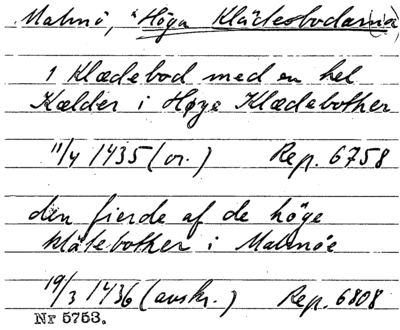 Malmö, *Höga Klädesbodarna(?)
1 Klædebod med en hel
Kælder i Høye Klædebother
11/4 1435 (or.) Rep. 6758
den fierde af de höge
klätebother i Malmöe
19/3 1436 (avskr.) Rep. 6808
Nr 5753.